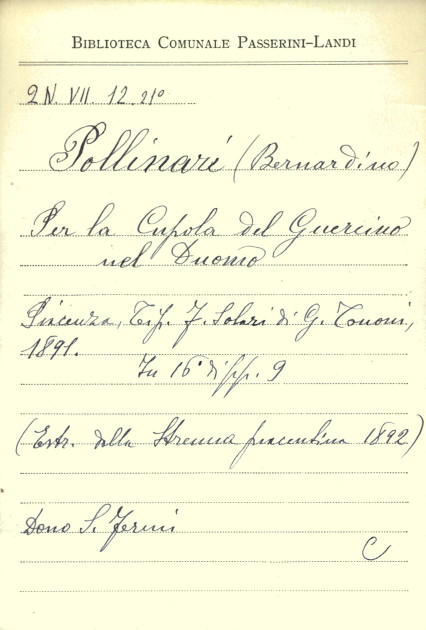 BIBLIOTECA COMUNALE PASSERINI-LANDI
2 N. VII. 12. 21º
Pollinari (Bernardino)
Per la Cupola del Guercino
nel Duomo
Piacenza, Tip. F. Solari di G. Tononi,
1891.
In 16º di pp. 9
(Estr. dalla Strenna piacentina 1892)
Dono S. Fermi
C